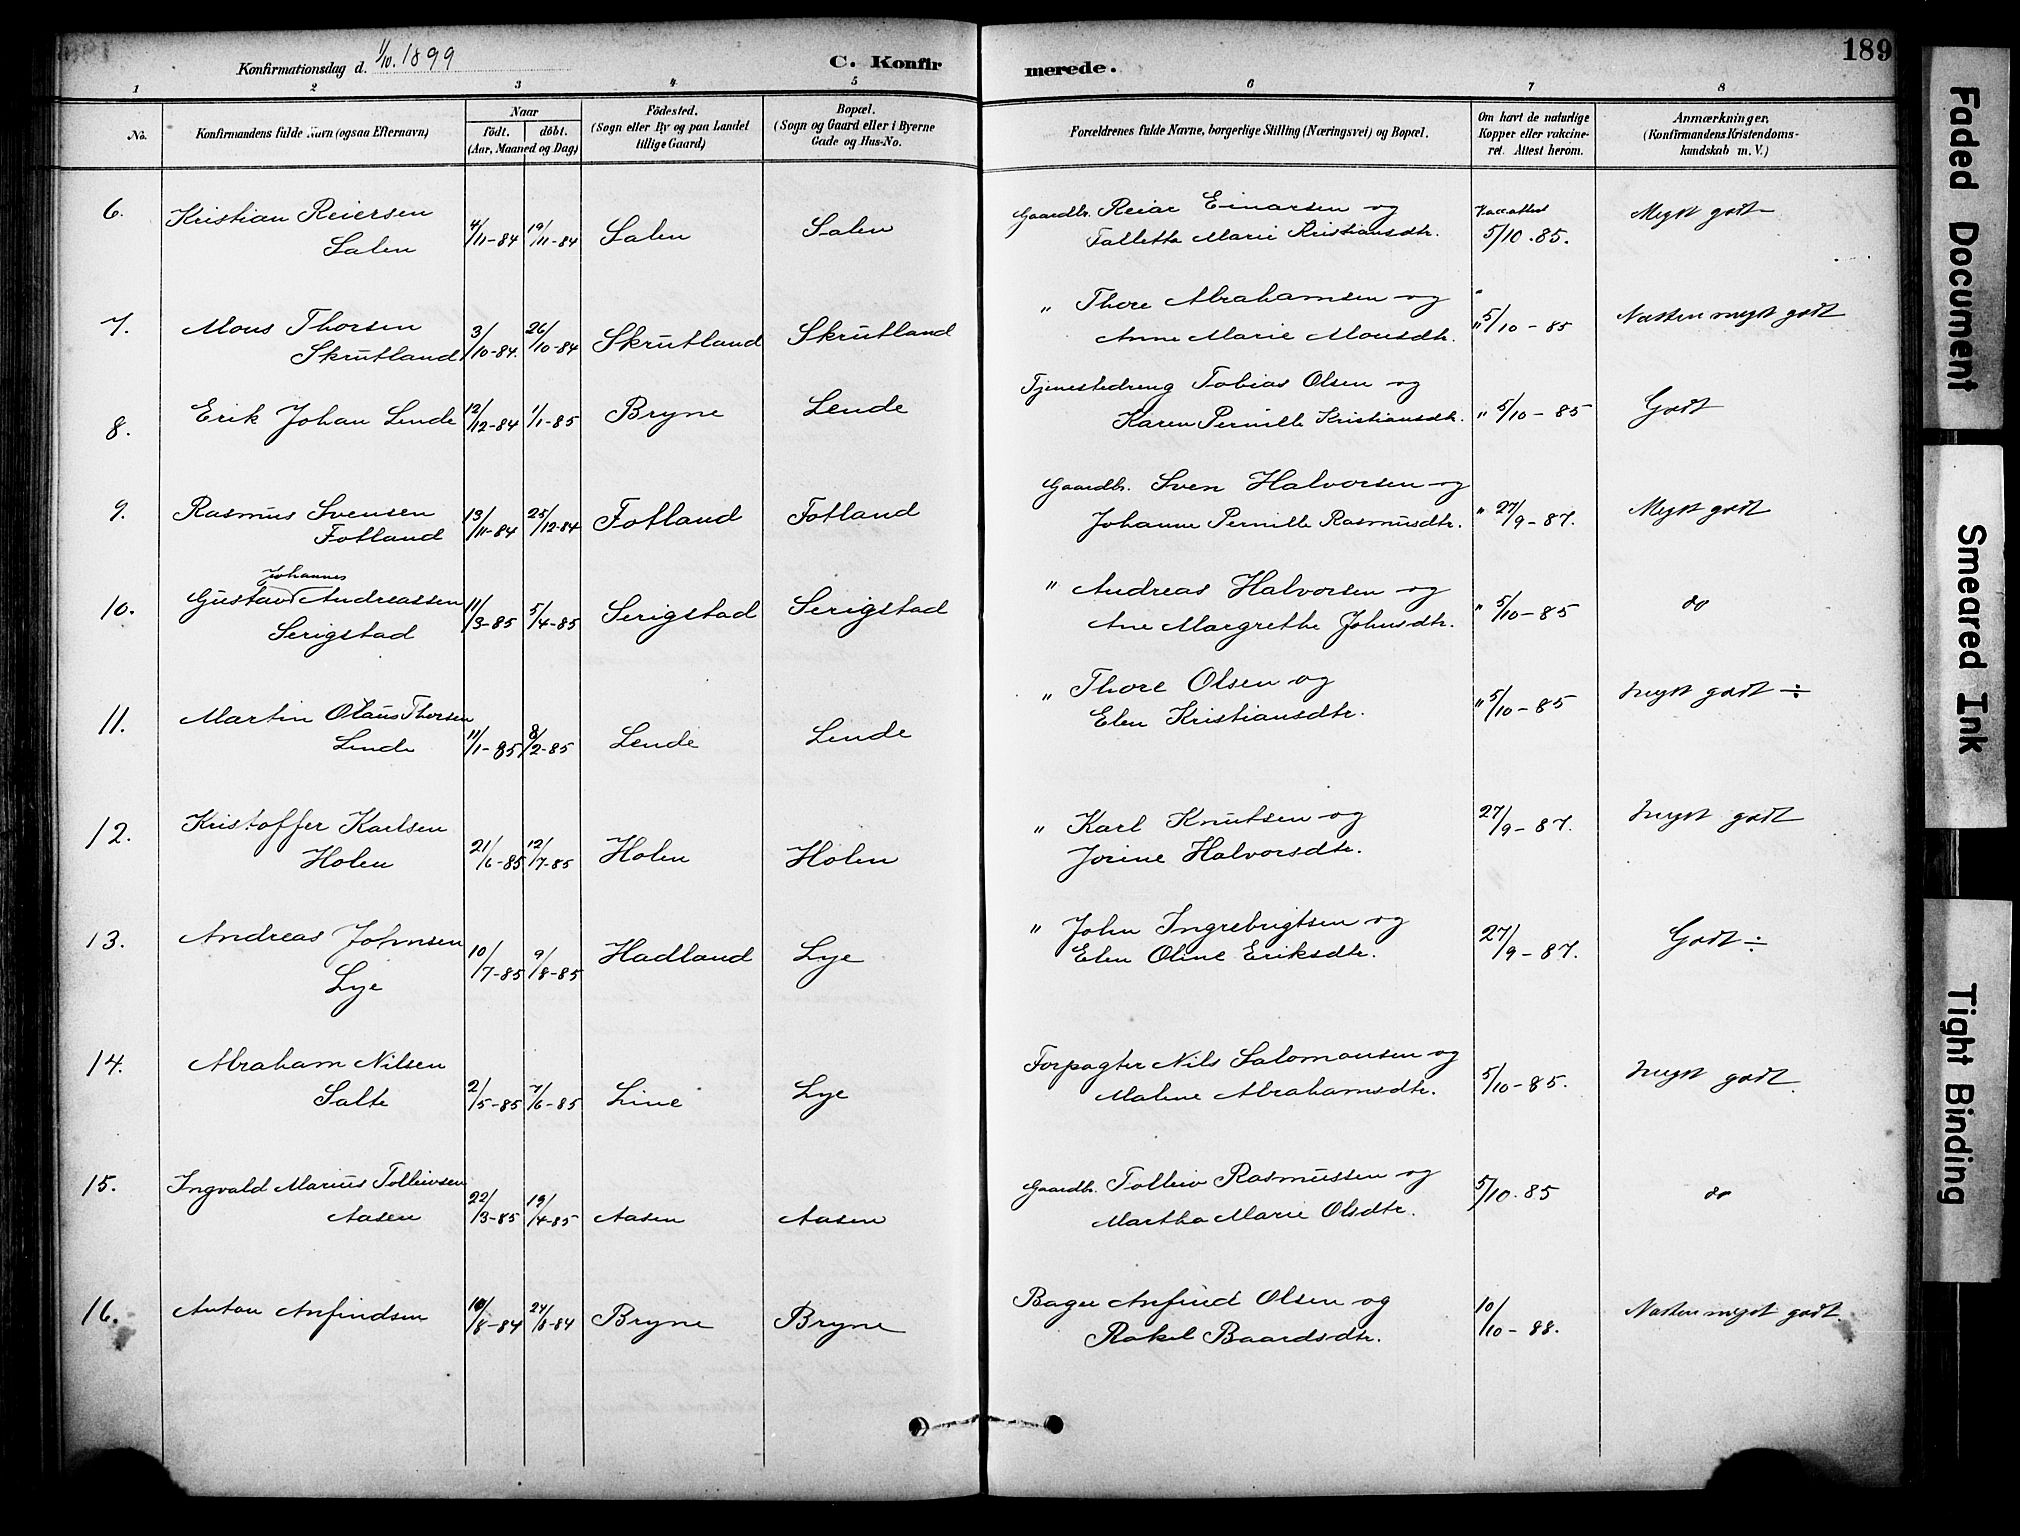 Konfirmationsdag d. 1/10. 1899 C. Konfir
merede. 189
1 2 3 4 5 6 7 8
No. Konfirmandens fulde Navn (ogsaa Efternavn) Naar födt. döbt. (Aar, Maaned og Dag) Födested. (Sogn eller By og paa Landet tillige Gaard) Bopæl. (Sogn og Gaard eller i Byerne Gade og Hus-No. Forældrenes fulde Navne, borgerlige Stilling (Næringsvei) og Bopæl. Om havt de naturlige Kopper eller vakcineret. Attest herom. Anmærkninger, (Konfirmandens Kristendomskundskab m. V.)
6. Kristian Reiersen 4/11-84 19/11-84 Salen Salen Gaardbr. Reiar Einarsen og Vaccattest Meget godt
Salen Talletta Marie Kristiansdtr. 5/10.85.
7. Mons Thorsen 3/10-84. 26/10-84 Skrutland Skrutland " Thore Abrahamsen og " 5/10-85 Næsten meget godt
Skrutland Anne Marie Monsdtr.
8. Erik Johan Lende 12/12-84 1/1-85 Bryne Lende Tjenestedreng Tobias Olsen og " 5/10-85 Godt
Karen Pernille Kristiansdtr.
9. Rasmus Svensen 13/11-84 25/12-84 Fotland Fotland Gaardbr. Sven Halvorsen og " 27/9-87. Meget godt
Fotland Johanne Pernille Rasmusdtr.
Johannes
10. Gustav Andreassen 11/3-85 5/4-85 Serigstad Serigstad " Andreas Halvorsen og " 5/10-85 do
Serigstad Ane Margrethe Johnsdtr.
11. Martin Olaus Thorsen 11/1-85 8/2-85 Lende Lende " Thore Olsen og " 5/10-85 meget godt ÷
Lende Elen Kristiansdtr.
12. Kristoffer Karlsen 21/6-85 12/7-85 Holen Holen " Karl Knutsen og 27/9-87. meget godt
Holen Jorine Halvorsdtr.
13. Andreas Johnsen 10/7-85 9/8-85 Hadland Lye " John Ingrebrigtsen og 27/9-87. Godt ÷
Lye Elen Oline Eriksdtr.
14. Abraham Nilsen 2/5-85 7/6-85 Line Lye Forpagter Nils Salomonsen og 5/10-85. meget godt
Salte Malene Abrahamsdtr.
15. Ingvald Marius Tolleivsen 22/3-85 19/4-85 Aasen Aasen Gaardbr. Tolleiv Rasmussen og 5/10.85 do
Aasen Martha Marie Olsdtr.
16. Anton Anfindsen 10/8-84 24/8-84 Bryne Bryne Bager Anfind Olsen og 10/10-88. Næsten meget godt.
Rakel Baardsdtr.
Faded Document
Smeared Ink
Tight Binding